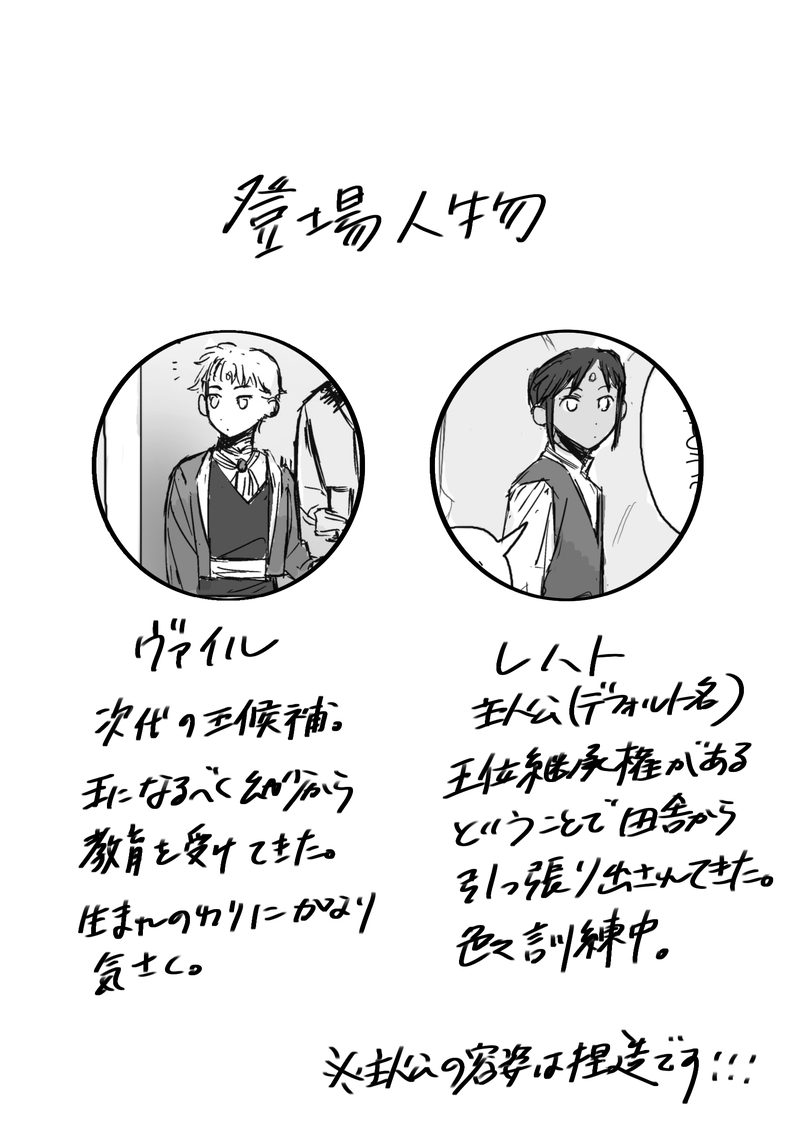 登場人物
ヴァイル
次代の王候補。
王になるべく幼少から
教育を受けてきた。
生まれのわりにかなり
気さく。
レハト
主人公(デフォルト名)
王位継承権がある
ということで田舎から
引っ張り出されてきた。
色々訓練中。
※主人公の容姿は捏造です!!!